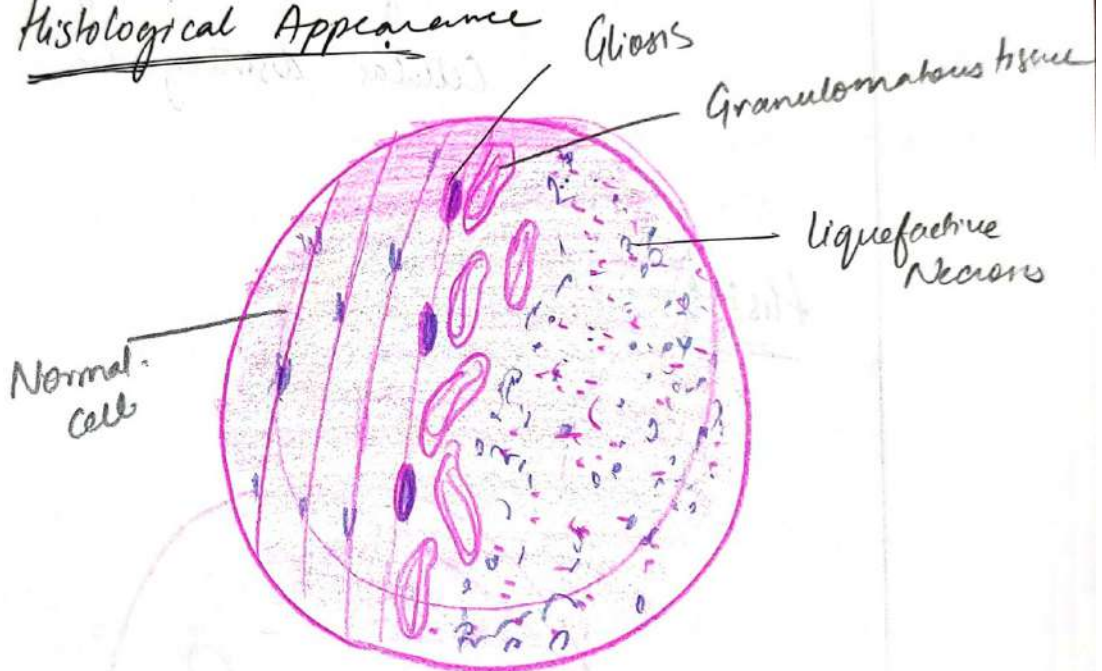 Histological Appearance
Gliosis
Granulomatous tissue
Liquefactive
Necrosis
Normal
cell